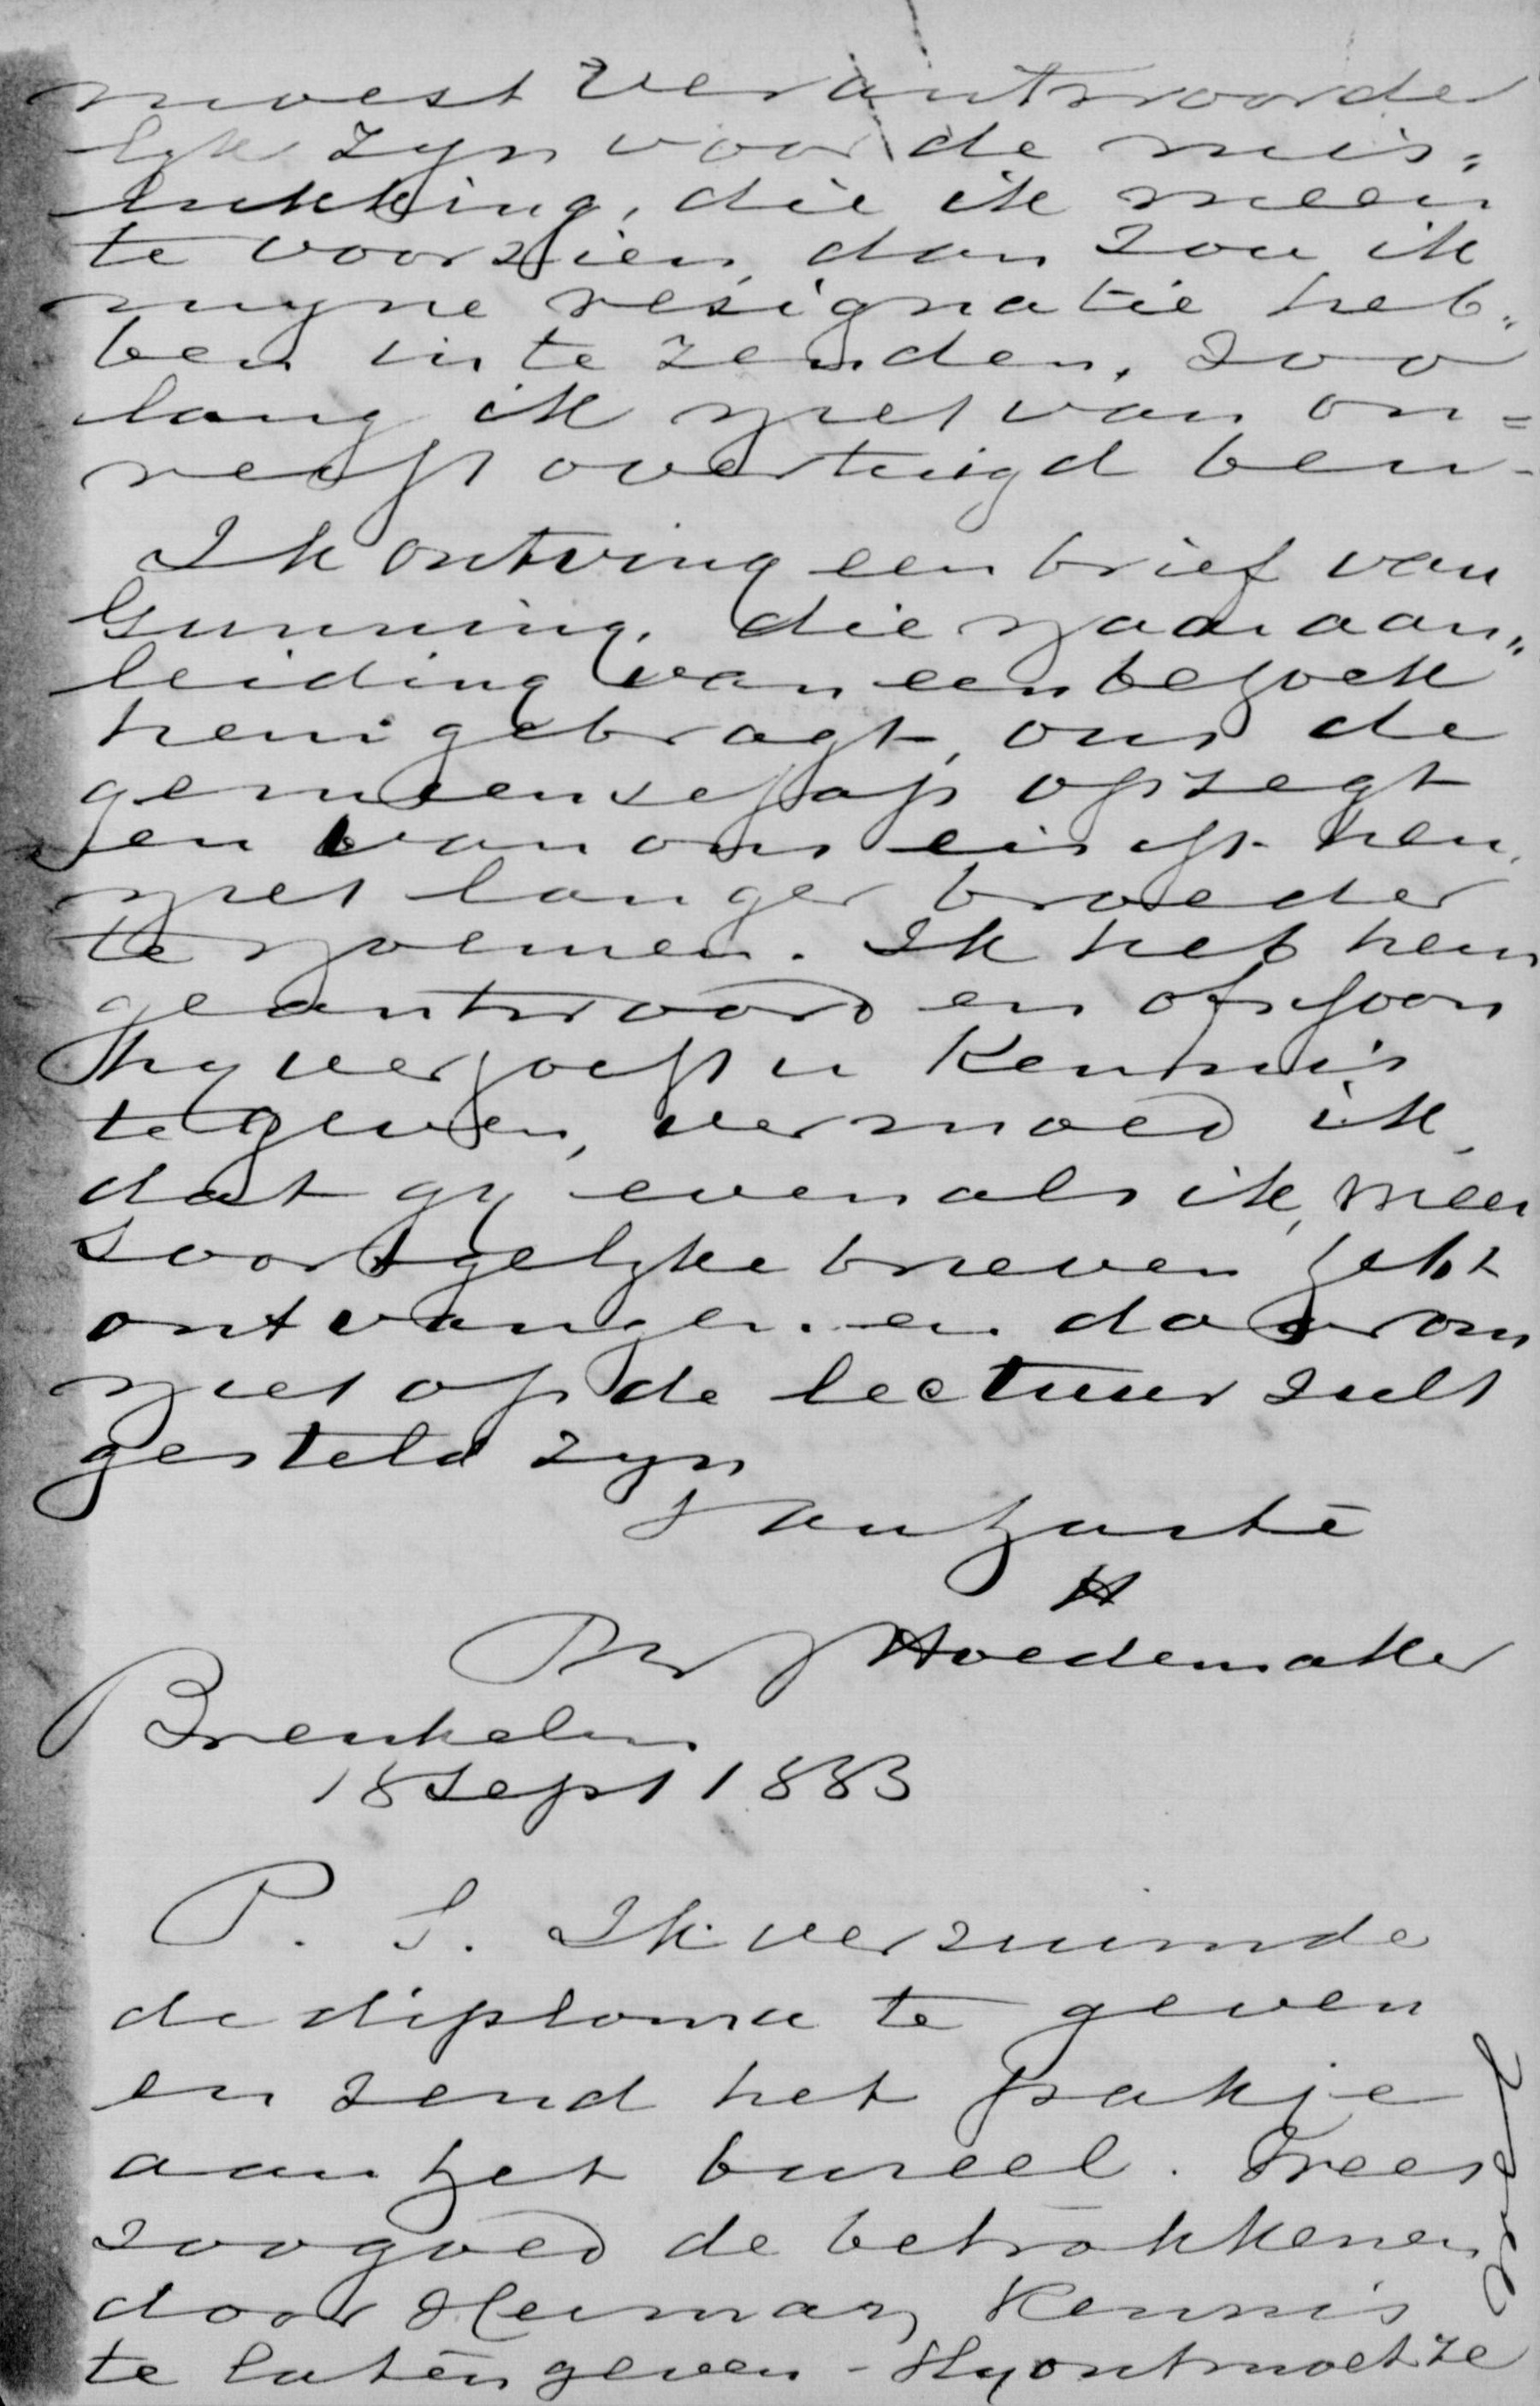 moest verantwoorde
lyk zyn voor de mis„
lukking, die ik meen
te voorzien, dan zou ik
myne resignatie heb„
ben in te zenden, zoo
lang ik niet van on=
recht overtuigd ben -
Ik ontving een brief van
Gunning, die naar aan„
leiding van een bezoek
hem gebragt, ons de
gemeenschap opzegt
en van ons eischt hem
niet langer broeder
te noemen. Ik heb hem
geantwoord en ofschoon
hy verzocht u kennis
te geven, vermoed ik,
dat gy evenals ik, meer
soortgelyke brieven hebt
ontvangen en daarom
niet op de lectuur zult
gesteld zyn
t. an harte
H
Ph J Hoedemaker
Breukelen
18 Sept 1883
P. S. Ik verzuimde
de diploma te geven
en zend het pakje
aan het bureel. Wees
zoo goed de betrokkenen
door kennis
te laten geven - Hy ontmoet ze